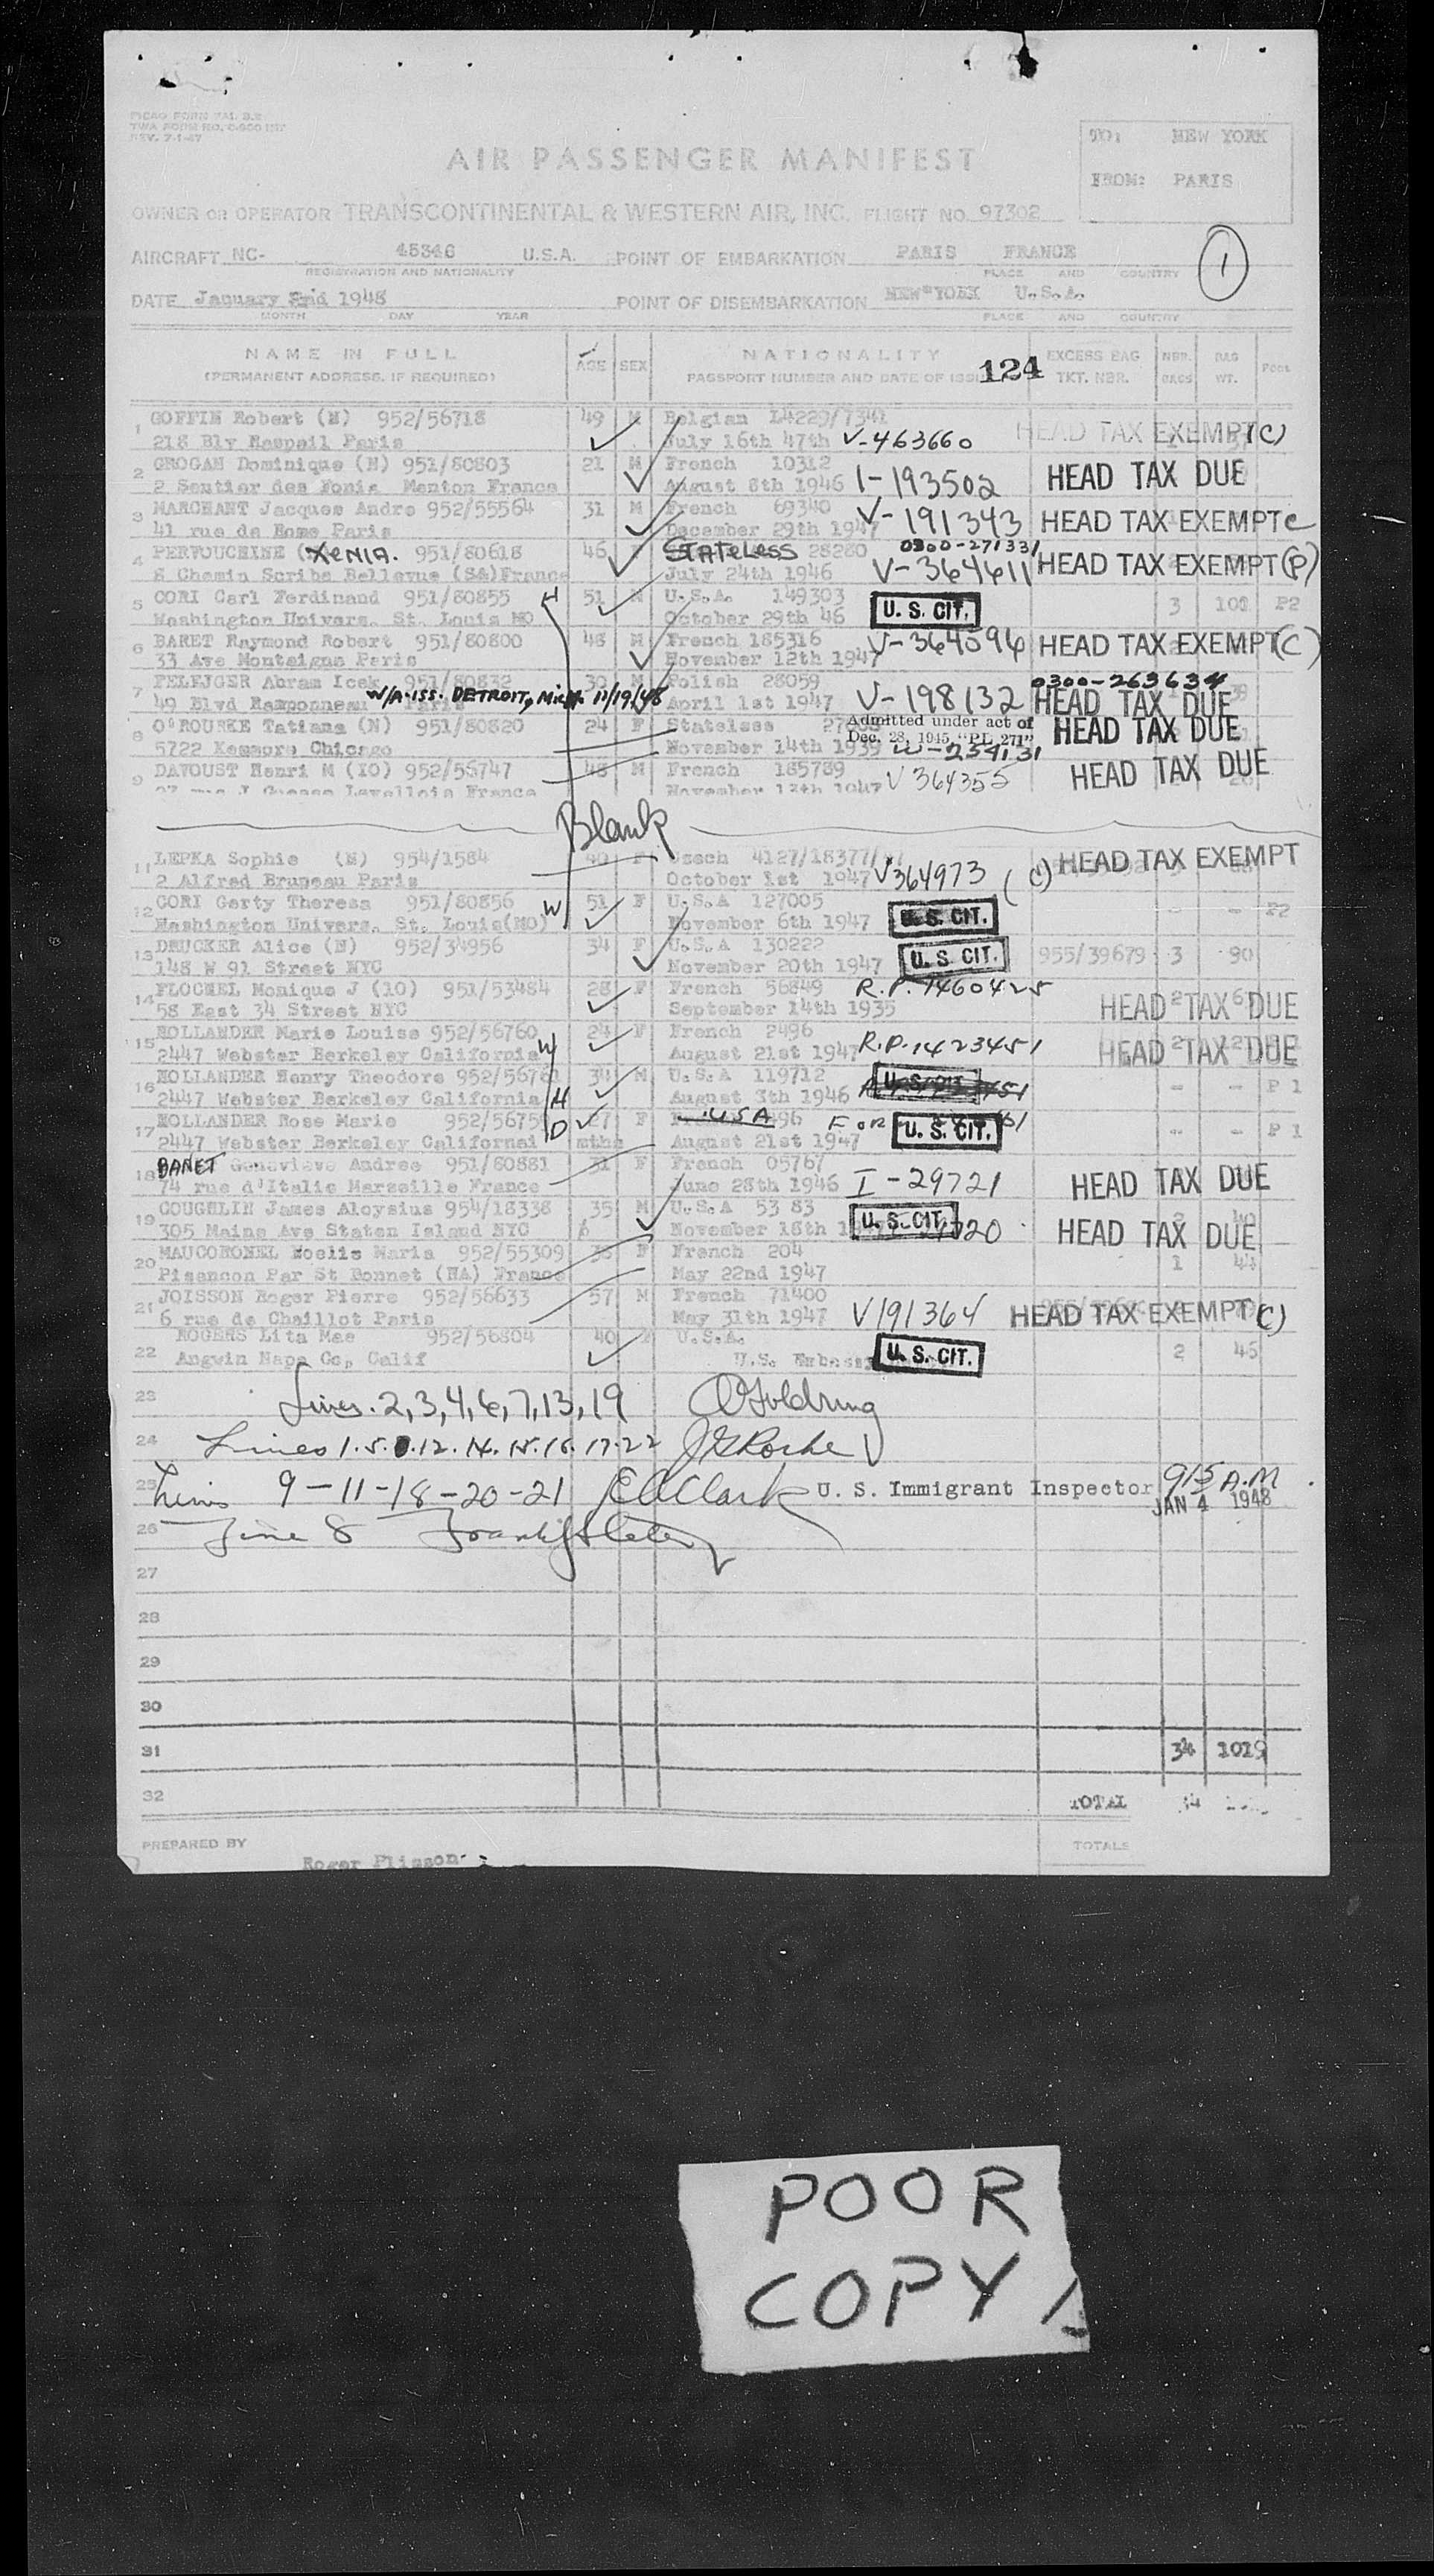 PICAO FORM
TWA FORM NO.
REV. 7-1-47
TO: NEW YORK
FROM: PARIS
AIR PASSENGER MANIFEST
OWNER OR OPERATOR TRANSCONTINENTAL & WESTERN AIR, INC. FLIGHT NO. 97302
AIRCRAFT NC- 45346 U.S.A. POINT OF EMBARKATION PARIS FRANCE
REGISTRATION AND NATIONALITY PLACE AND COUNTRY
1
DATE January 2nd 1948 POINT OF DISEMBARKATION NEW YORK U.S.A.
MONTH DAY YEAR PLACE AND COUNTRY
NAME IN FULL AGE SEX NATIONALITY 124 EXCESS BAG NBR. BAG
(PERMANENT ADDRESS, IF REQUIRED) PASSPORT NUMBER AND DATE OF TKT. NBR. BAGS WT.
1 GOFFIN Robert (N) 952/56718 49 M Belgian L4229/7341
218 Blv Raspail Paris July 16th 47th V-463660 HEAD TAX EXEMPT (C)
2 GROGAN Dominique (N) 951/80803 21 M French 10312
2 Sentier des Fonis Menton France August 8th 1946 I-193502 HEAD TAX DUE
3 MARCHANT Jacques Andre 952/55564 31 M French 69340
41 rue de Rome Paris December 29th 1947 V-191343 HEAD TAX EXEMPT C
4 PERVOUCHINE (XENIA. 951/80618 46 STATELESS 28280 0300-271331
8 Chemin Scribe Bellevue (S&) France July 24th 1946 V-364611 HEAD TAX EXEMPT (P)
5 CORI Carl Ferdinand 951/80855 H 51 M U.S.A. 149303
Washington Univers. St. Louis MO October 29th 46 U. S. CIT. 3 102 P2
6 BARET Raymond Robert 951/80800 48 M French 185316
33 Ave Montaigne Paris November 12th 1947 V-364596 HEAD TAX EXEMPT (C)
7 FELEJGER Abram Icek 951/80832 30 M Polish 28059 0300-263634
W/A.ISS. DETROIT, Mich. 11/19/48
49 Blvd Ramponneau Paris April 1st 1947 V-198132 HEAD TAX DUE
8 O'ROURKE Tatiana (N) 951/80820 24 F Stateless Admitted under act of
5722 Kenmore Chicago November 14th 1939 Dec. 28, 1945 "PL 271" HEAD TAX DUE
9 DAVOUST Henri M (10) 952/56747 48 M French 185789
Levallois France November 13th 1947 V 364355 HEAD TAX DUE
Blank
11 LEPKA Sophie (N) 954/1584 40 F Czech 4127/18377/
2 Alfred Bruneau Paris October 1st 1947 V364973 (C) HEAD TAX EXEMPT
12 CORI Gerty Theresa 951/80856 W 51 F U.S.A 127005
Washington Univers. St. Louis(MO) November 6th 1947 U. S. CIT. - - P2
13 DRUCKER Alice (N) 952/34956 34 F U.S.A 130222
148 W 91 Street NYC November 20th 1947 U. S. CIT. 955/39679 3 90
14 FLOCHEL Monique J (10) 951/53484 28 F French 56849 R.P. 1460425
58 East 34 Street NYC September 14th 1935 HEAD TAX DUE
15 HOLLANDER Marie Louise 952/56760 W 24 F French 2496
2447 Webster Berkeley California August 21st 1947 R.P.1423451 HEAD TAX DUE
16 HOLLANDER Henry Theodore 952/56761 34 M U.S.A 119712
2447 Webster Berkeley California H August 8th 1946 U. S. CIT. - - P 1
17 HOLLANDER Rose Marie 952/5675 27 F USA
2447 Webster Berkeley Californai D mths August 21st 1947 U. S. CIT. - - P 1
18 BANET Genevieve Andree 951/80881 31 F French 05767
74 rue d'Italie Marseille France June 28th 1946 I-29721 HEAD TAX DUE
19 COUGHLIN James Aloysius 954/18338 35 M U.S.A 53 83
305 Maine Ave Staten Island NYC November 18th U. S. CIT. HEAD TAX DUE
20 MAUCORONEL Noelie Maria 952/55309 F French 204
Pisancon Par St Bonnet (HA) France May 22nd 1947 1 44
21 JOISSON Roger Pierre 952/56633 57 M French 71400
6 rue de Chaillot Paris May 31th 1947 V191364 HEAD TAX EXEMPT (C)
22 ROGERS Lita Mae 952/56804 40 F U.S.A.
Angwin Napa Co, Calif U.S. Embassy U. S. CIT. 2 45
23 Lines. 2,3,4,6,7,13,19 Goldring
24 Lines 1.5.12.14.15.16.17.22 Roche
25 Lines 9-11-18-20-21 Clark U. S. Immigrant Inspector 915 A.M
JAN 4 1948
26 Line 8
27
28
29
30
31 34 1019
32 TOTAL
PREPARED BY Roger Plisson TOTALS
POOR
COPY